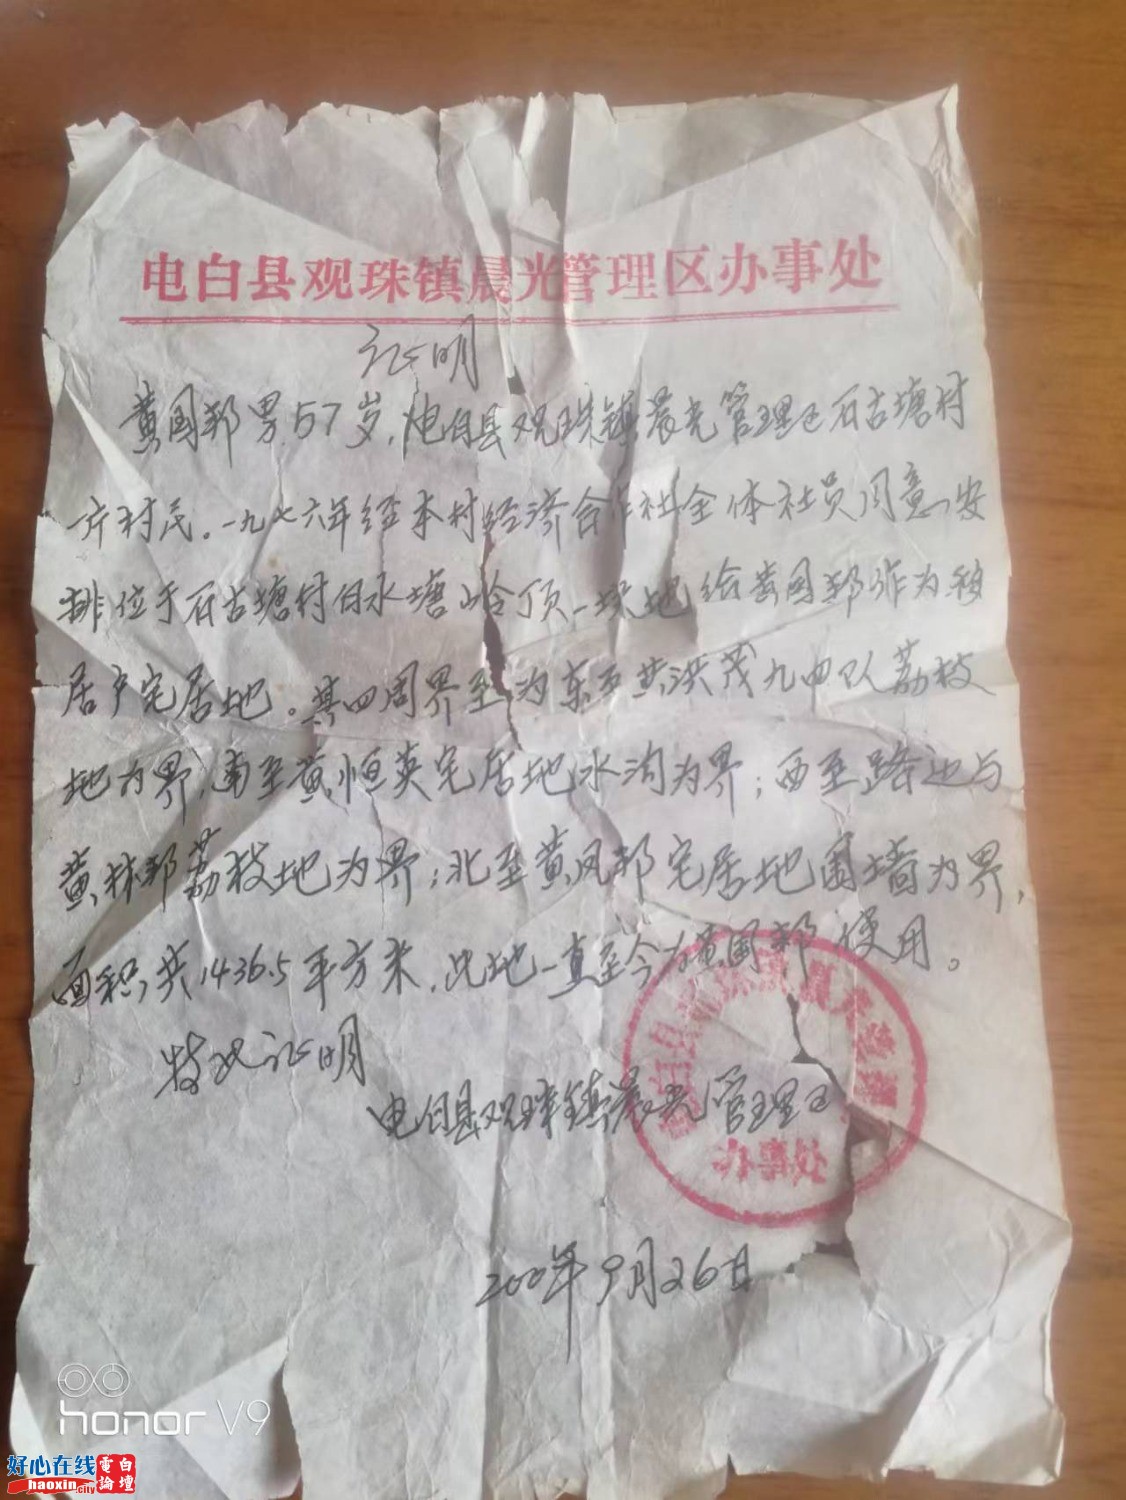 电白县观珠镇晨光管理区办事处
证明
黄国邦男.57岁,电白县观珠镇晨光管理区石古塘村
村民.一九七六年经本村经济合作社全体社员同意,安
排位于石古塘村白水塘岭顶一块地给黄国邦作为移
居户宅居地。其四周界至为东至黄洪茂九四队荔枝
地为界,南至黄恒英宅居地水沟为界;西至路边与
黄林邦荔枝地为界;北至黄凤邦宅居地围墙为界,
面积共1436.5平方米.此地一直至今为黄国邦使用。
特此证明
电白县观珠镇晨光管理区
2000年9月26日
honor V9
好心在线
haoxin.city
電白論壇